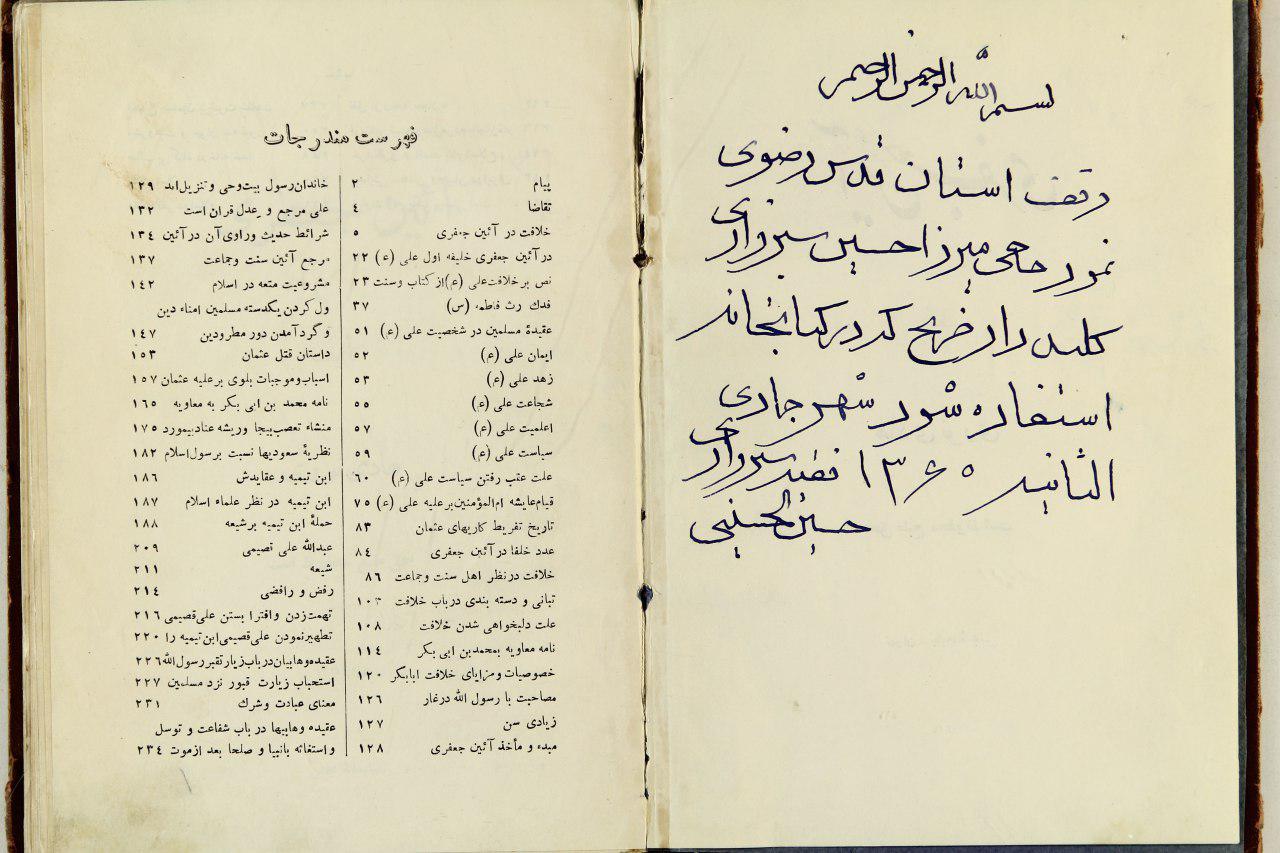 بسم الله الرحمن الرحیم
وقف استان قدس رضوی
نمود حاجی میرزا حسین سبزواری
کلید دار ضریح که در کتابخانه
استفاده شود شهر جمادی
الثانیه ۱۳۶۵ فقیر سبزواری
حسین الحسینی
فهرست مندرجات
پیام ۲
تقاضا ٤
خلافت در آئین جعفری ٥
در آئین جعفری خلیفه اول علی (ع) ۲۲
نص بر خلافت علی (ع) از کتاب و سنت ۲۳
فدك رث فاطمه (س) ۳۷
عقیدهٔ مسلمین در شخصیت علی (ع) ٥۱
ایمان علی (ع) ٥۲
زهد علی (ع) ٥۳
شجاعت علی (ع) ٥٥
اعلمیت علی (ع) ٥۷
سیاست علی (ع) ٥۹
علت عقب رفتن سیاست علی (ع) ٦۰
قیام عایشه ام المؤمنین بر علیه علی (ع) ۷٥
تاریخ تفریط کاریهای عثمان ۸۳
عدد خلفا در آئین جعفری ۸٤
خلافت در نظر اهل سنت و جماعت ۸٦
تبانی و دسته بندی در باب خلافت ۱۰۳
علت دلبخواهی شدن خلافت ۱۰۸
نامه معاویه بمحمد بن ابی بکر ۱۱٤
خصوصیات و مزایای خلافت ابابکر ۱۲۰
مصاحبت با رسول الله در غار ۱۲٦
زیادی سن ۱۲۷
مبدء و مأخذ آئین جعفری ۱۲۸
خاندان رسول بیت وحی و تنزیل اند ۱۲۹
علی مرجع و عدل قران است ۱۳۲
شرائط حدیث و راوی آن در آئین ۱۳٤
مرجع آئین سنت و جماعت ۱۳۷
مشروعیت متعه در اسلام ۱٤۲
ول کردن یکدسته مسلمین امناء دین
و گرد آمدن دور مطرودین ۱٤۷
داستان قتل عثمان ۱٥۳
اسباب و موجبات بلوی بر علیه عثمان ۱٥۷
نامه محمد بن ابی بکر به معاویه ۱٦٥
منشاء تعصب بیجا و ریشه عناد بیمورد ۱۷٥
نظریهٔ سعودیها نسبت برسول اسلام ۱۸۲
ابن تیمیه و عقایدش ۱۸٦
ابن تیمیه در نظر علماء اسلام ۱۸۷
حملهٔ ابن تیمیه بر شیعه ۱۸۸
عبدالله علی قصیمی ۲۰۹
شیعه ۲۱۱
رفض و رافضی ۲۱٤
تهمت زدن و افترا بستن علی قصیمی ۲۱٦
تطهیر نمودن علی قصیمی ابن تیمیه را ۲۲۰
عقیده وهابیان در باب زیارت قبر رسول الله ۲۲٦
استحباب زیارت قبور نزد مسلمین ۲۲۷
معنای عبادت و شرك ۲۳۱
عقیده وهابیها در باب شفاعت و توسل
و استغاثه بانبیا و صلحا بعد از موت ۲۳٤